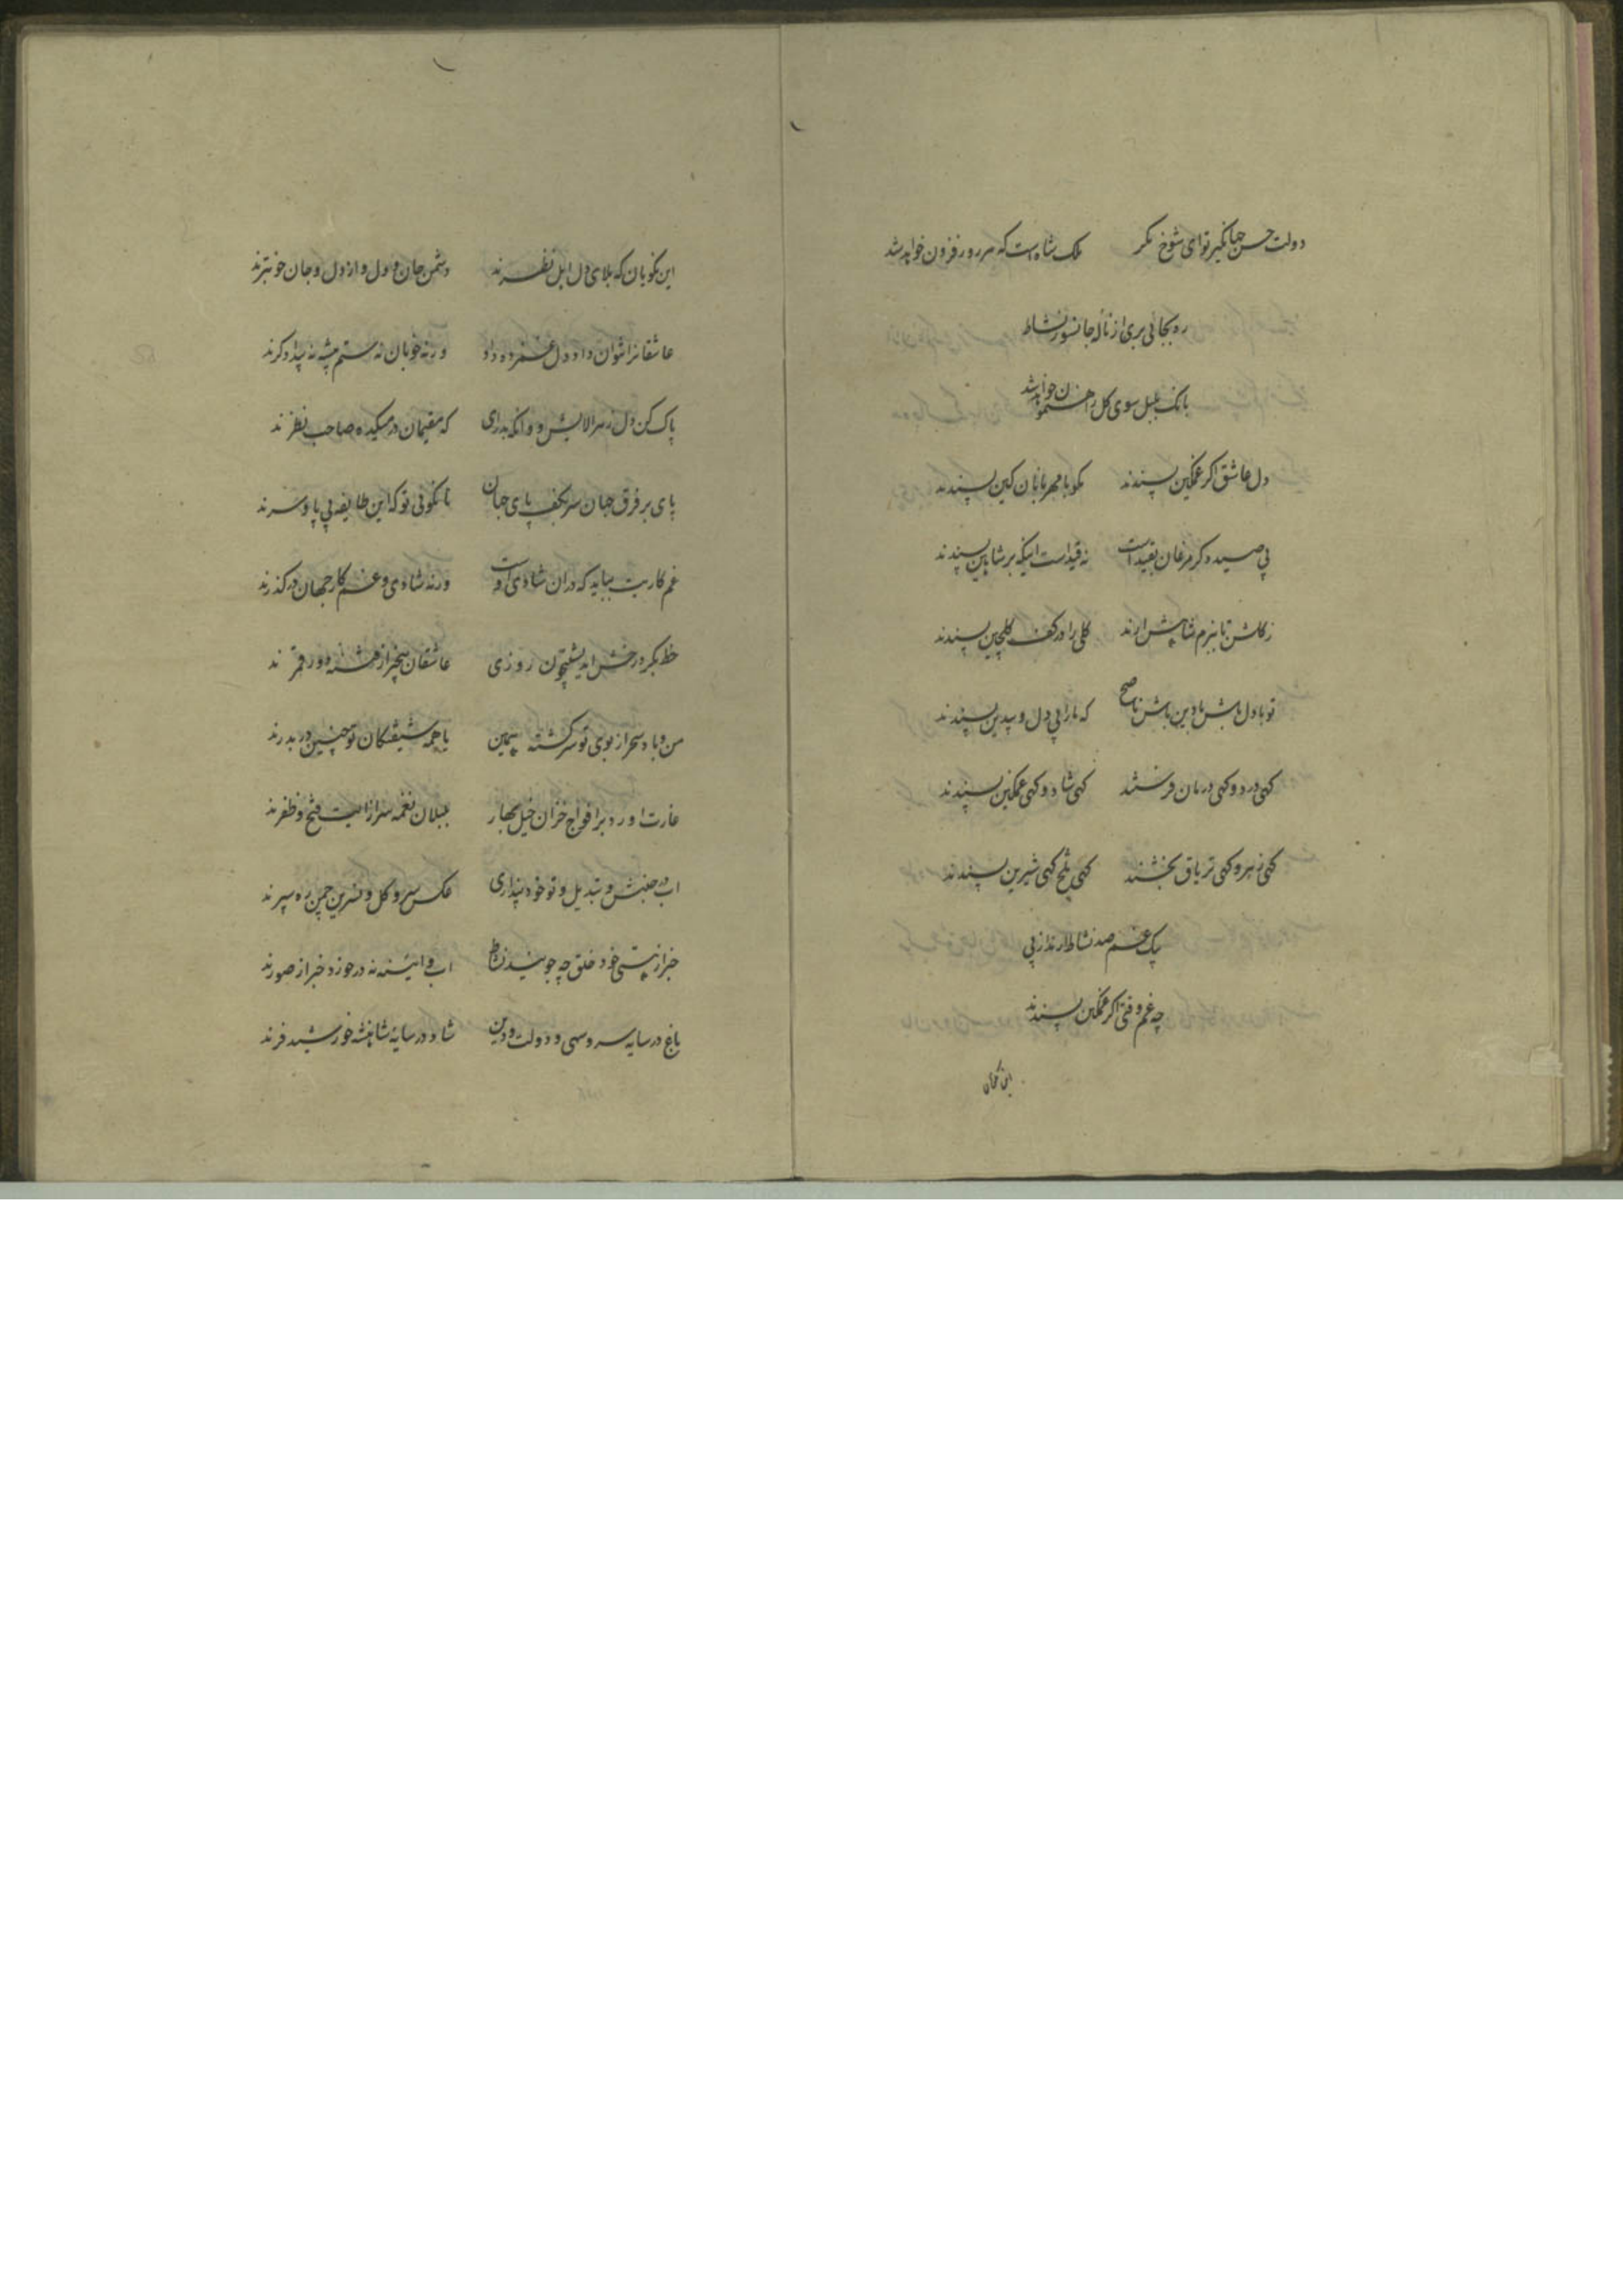 دولت حسن جهانکیر توای شوخ مکر ملک شاه است که هر روز فزون خواهد شد
ره بجائی بری از نالهٔ جانسوز نشاط
بانک بلبل سوی کل راهنمون خواهد شد
دل عاشق اکر غمکین پسندند نکو با مهربانان کین پسندند
پی صید دکر مرغان بقید است نه قید است اینکه بر شاهین پسندند
ز کلشن تا ببزم شاهش ارند کلی را در کف کلچین پسندند
تو با دل باش با دین باش ناصح که ما را بی دل و بیدین پسندند
کهی درد و کهی درمان فرستند کهی شاد و کهی غمکین پسندند
کهی زهر و کهی تریاق بخشند کهی تلخ کهی شیرین پسندند
یک غم صد نشاط ارند از پی
چه غم وقتی اکر غمکین پسندند
این نکویان
این نکویان که بلای دل اهل نظرند دشمن جان و دل و از دل و جان خوبترند
عاشقانرا نتوان داد دل غمزده داد ورنه خوبان نه ستم پیشه نه بیدادکرند
پاک کن دل ز هر الایش و وانکه بدرای که مقیمان در میکده صاحب نظرند
پای بر فرق جهان سر بکف پای جهان تا نکوئی تو که این طایفه بی پا و سرند
غم کاریت بباید که دران شادی اوست ورنه شادی و غم کار جهان در کذرند
خط بکرد رخش اید بشبیخون روزی عاشقان بیخبر از فتنهٔ دور قمرند
من و باد سحر از بوی تو سرکشته همین یا همه شیفتکان تو چنین دربدرند
غارت اورد بر افواج خزان خیل بهار بلبلان نغمه سرا زایت فتح و ظفرند
اب در جنبش و تبدیل و تو خود پنداری عکس سرو و کل و نسرین چمن ره سپرند
خبر از هستی خود خلق چه جویند نشاط اب و ائینه نه در خورد خبر از صورند
باغ در سایه سرو سهی و دولت و دین شاد در سایهٔ شاهنشه خورشید فرند